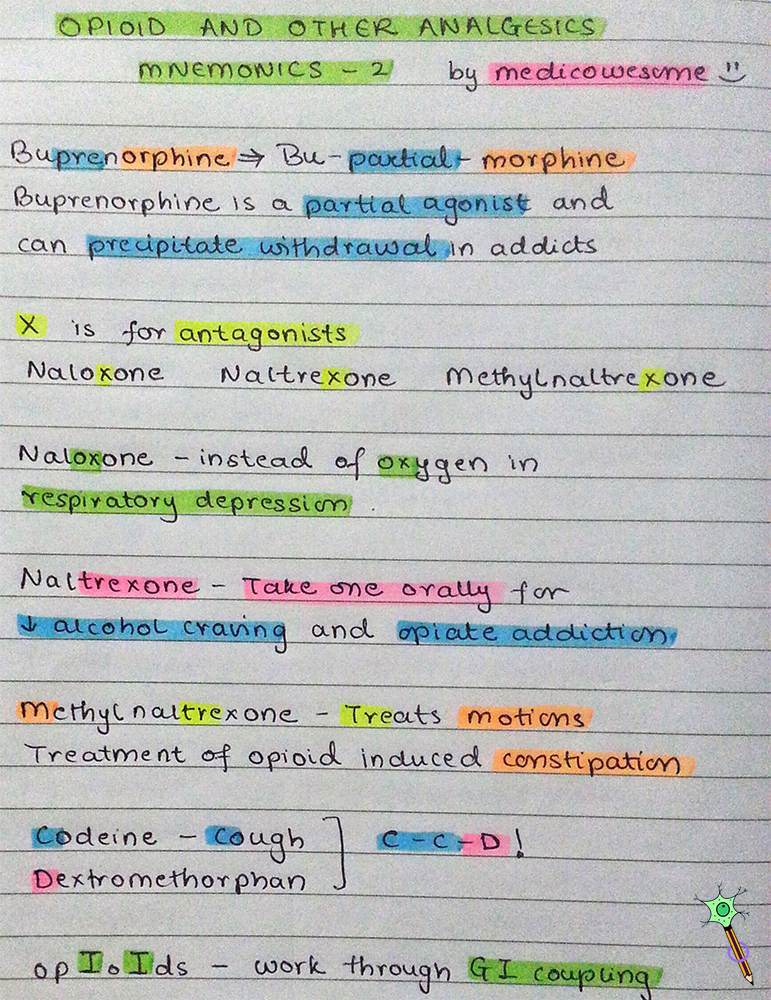 OPIOID AND OTHER ANALGESICS
MNEMONICS - 2 by medicowesome
Buprenorphine ⇒ Bu-partial-morphine
Buprenorphine is a partial agonist and
can precipitate withdrawal in addicts
X is for antagonists
Naloxone Naltrexone Methylnaltrexone
Naloxone - instead of oxygen in
respiratory depression.
Naltrexone - Take one orally for
↓ alcohol craving and opiate addiction
Methylnaltrexone - Treats motions
Treatment of opioid induced constipation
Codeine - Cough
Dextromethorphan
C-C-D!
opIoIds - work through GI coupling